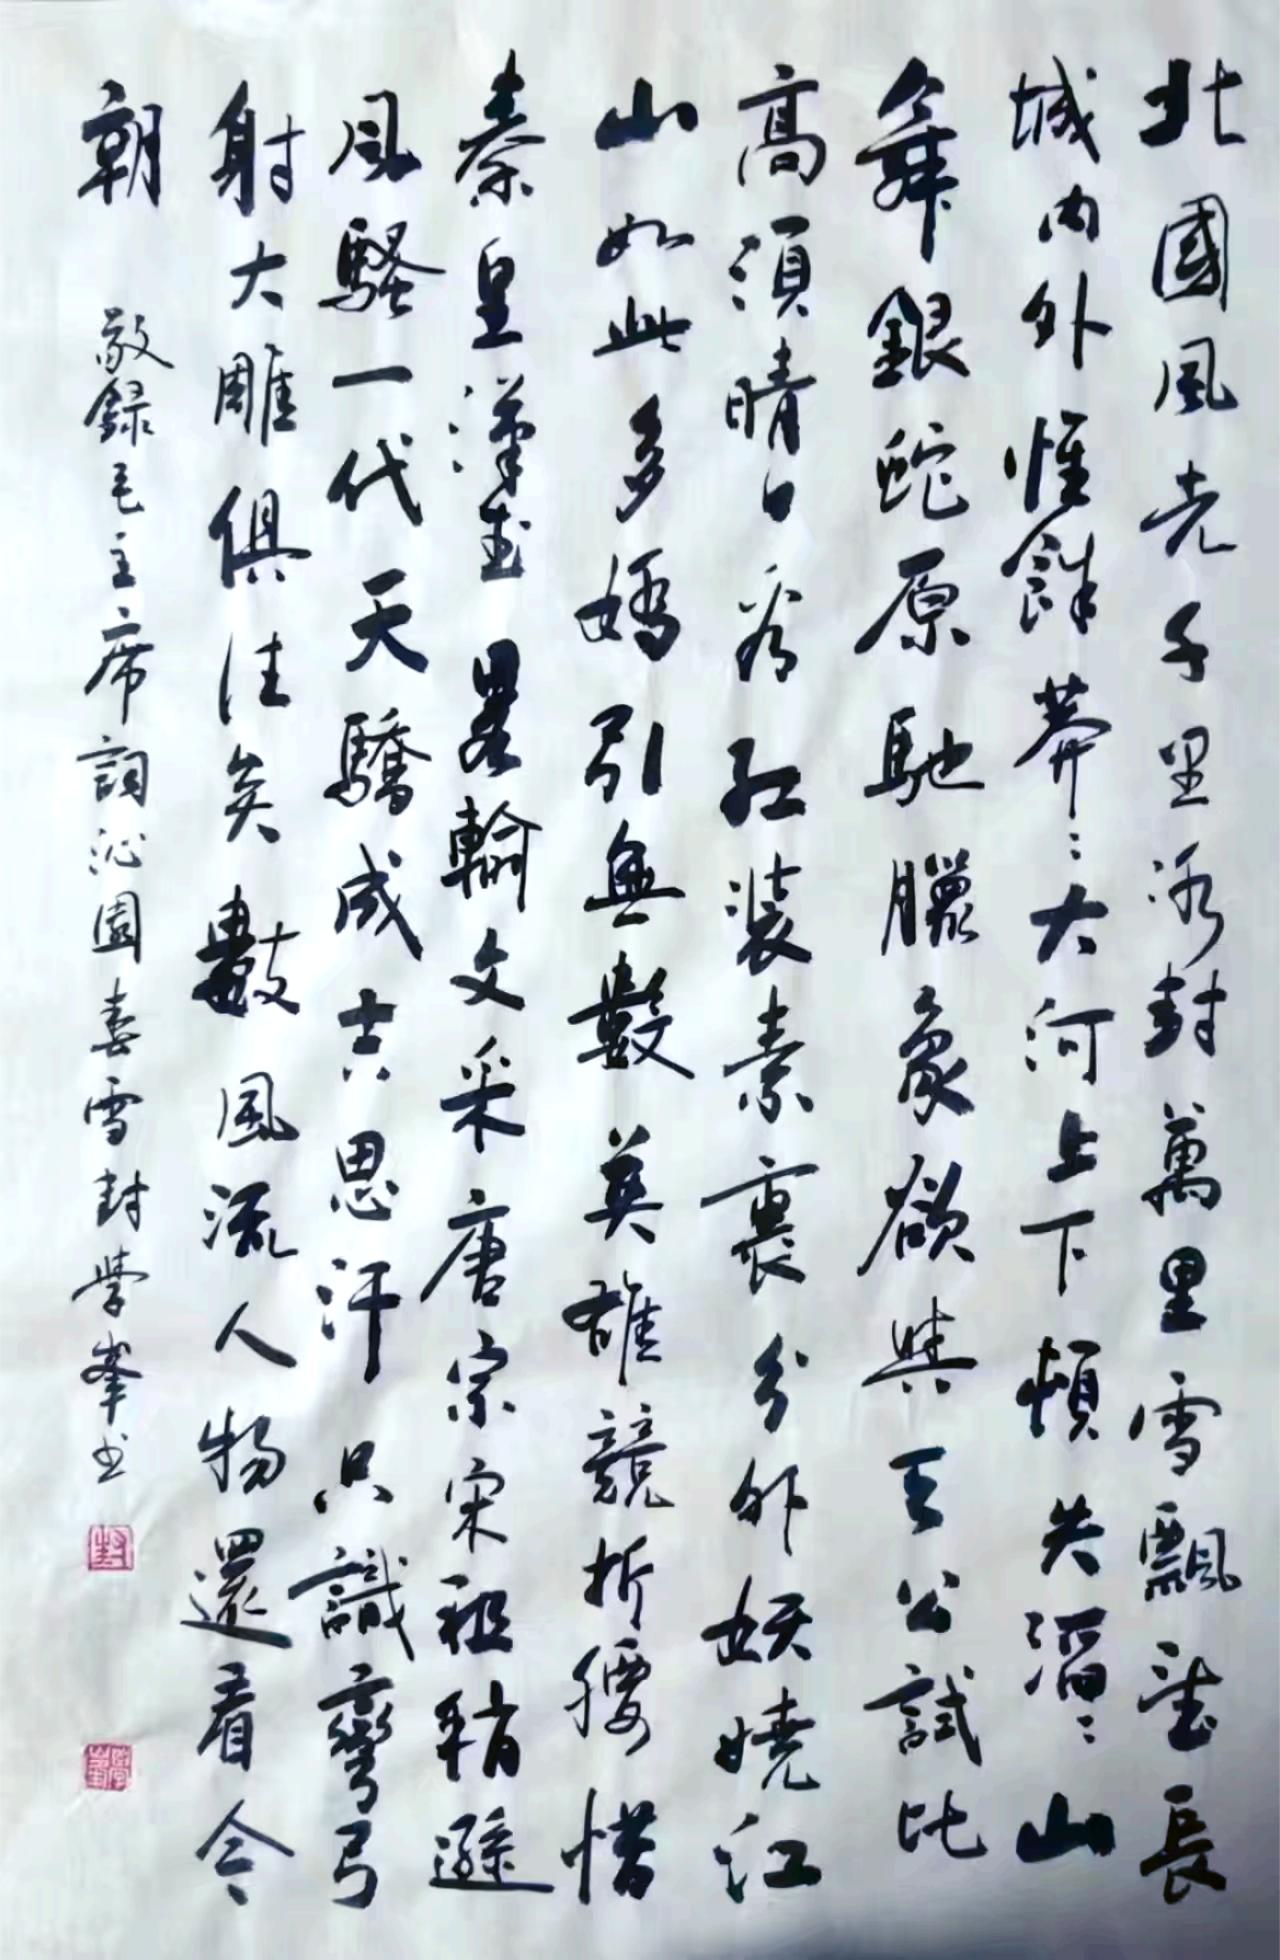 北國風光千里冰封萬里雪飄望長
城内外惟餘莽〻大河上下頓失滔〻山
舞銀蛇原馳臘象欲與天公試比
高須晴日看紅裝素裹分外妖嬈江
山如此多嬌引無數英雄競折腰惜
秦皇漢武畧輸文采唐宗宋祖稍遜
風騷一代天驕成吉思汗只識彎弓
射大雕俱往矣數風流人物還看今
朝
敬録毛主席詞沁園春雪封學峯书
封
學峯